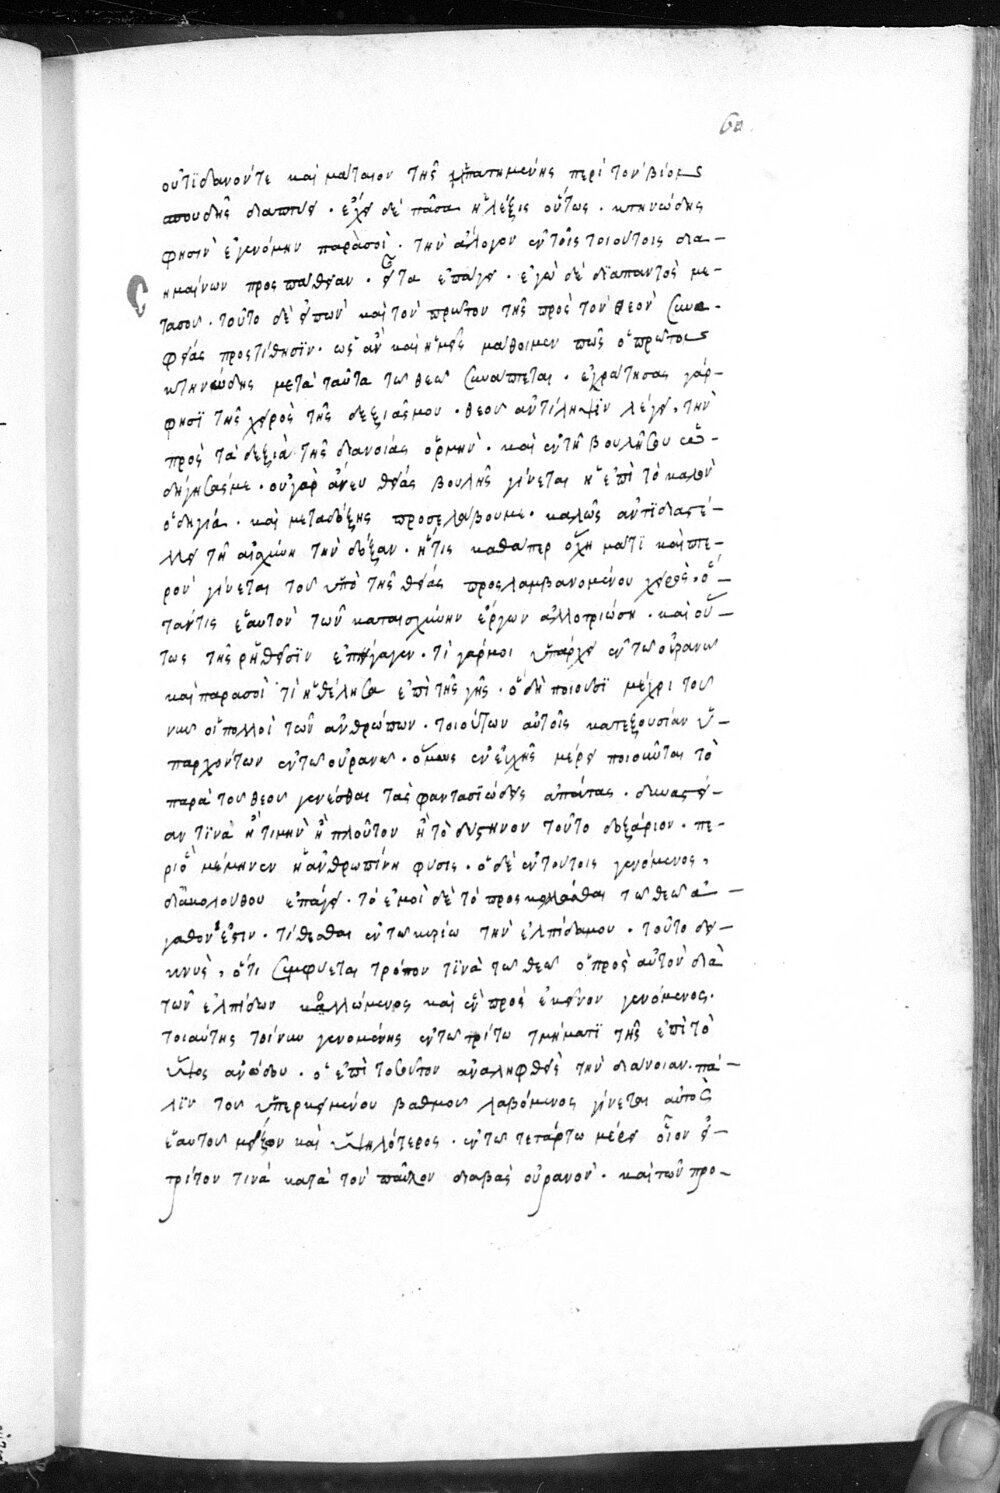 60
οὐτιδανόν τε καὶ μάταιον τῆς ἠπατημένης περὶ τὸν βίον
σπουδῆς διαπτύει. ἔχει δὲ πᾶσα ἡ λέξις οὕτως. κτηνώδης
φησὶν ἐγενόμην παρὰ σοὶ. τὴν ἄλογον ἐν τοῖς τοιούτοις δια-
σημαίνων προσπάθειαν. εἶτα ἐπάγει. ἐγὼ δὲ διαπαντὸς με-
τὰ σου. τοῦτο δὲ εἰπὼν καὶ τὸν πρῶτον τῆς πρὸς τὸν θεὸν συνα-
φείας προστίθησιν. ὡς ἂν καὶ ἡμεῖς μάθοιμεν πῶς ὁ πρῶτος
κτηνώδης μετὰ ταῦτα τῷ θεῷ συνάπτεται. ἐκράτησας γάρ
φησι τῆς χειρὸς τῆς δεξιᾶς μου. θεοῦ ἀντίληψιν λέγει, τὴν
πρὸς τὰ δεξιὰ τῆς διανοίας ὁρμήν. καὶ ἐν τῇ βουλῇ σου ὡ-
δήγησάς με. οὐ γὰρ ἄνευ θείας βουλῆς γίνεται ἡ ἐπὶ τὸ καλὸν
ὁδηγία. καὶ μετὰ δόξης προσελάβου με. καλῶς ἀντιδιαστέ-
λλει τῇ αἰσχύνῃ τὴν δόξαν. ἥτις καθάπερ ὄχημά τι καὶ πτε-
ρὸν γίνεται τοῦ ὑπὸ τῆς θείας προσλαμβανομένου χειρὸς, ὅ-
ταν τις ἑαυτὸν τῶν καταισχύνην ἔργων ἀλλοτριώσῃ. καὶ οὕ-
τως τῆς ῥηθεῖσιν ἐπήγαγεν. τί γάρ μοι ὑπάρχει ἐν τῷ οὐρανῷ
καὶ παρὰ σοὶ τί ἠθέλησα ἐπὶ τῆς γῆς. ὃ δὴ ποιοῦσι μέχρι τοῦ
νῦν οἱ πολλοὶ τῶν ἀνθρώπων. τοιούτων αὐτοῖς κατεξουσίαν ὑ-
παρχόντων ἐν τῷ οὐρανῷ. ὅμως ἐν εὐχῆς μέρει ποιοῦνται τὸ
παρὰ τοῦ θεοῦ γενέσθαι τὰς φαντασιώδεις ἀπάτας. δυναστεί-
αν τινὰ ἢ τιμὴν ἢ πλοῦτον ἢ τὸ δύστηνον τοῦτο δοξάριον. πε-
ρὶ ὃ μέμηνεν ἡ ἀνθρωπίνη φύσις. ὁ δὲ ἐν τούτοις γενόμενος,
διακολούθου ἐπάγει. τὸ ἐμοὶ δὲ τὸ προσκολλᾶσθαι τῷ θεῷ ἀ-
γαθόν ἐστιν. τίθεσθαι ἐν τῷ κυρίῳ τὴν ἐλπίδα μου. τοῦτο δει-
κνύς, ὅτι συμφύεται τρόπον τινὰ τῷ θεῷ ὁ πρὸς αὐτὸν διὰ
τῶν ἐλπίδων κολλώμενος καὶ ἓν πρὸς ἐκεῖνον γενόμενος.
τοιαύτης τοίνυν γενομένης ἐν τῷ τρίτῳ τμήματι τῆς ἐπὶ τὸ
ὕψος ἀνόδου. ὁ ἐπὶ τοσοῦτον ἀναληφθεὶς τὴν διάνοιαν. πά-
λιν τοῦ ὑπερκειμένου βαθμοῦ λαβόμενος γίνεται αὐτὸς
ἑαυτοῦ μείζων καὶ ὑψηλότερος. ἐν τῷ τετάρτῳ μέρει οἷον εἰ-
τρίτον τινὰ κατὰ τὸν παῦλον διαβὰς οὐρανόν. καὶ τῶν προ-